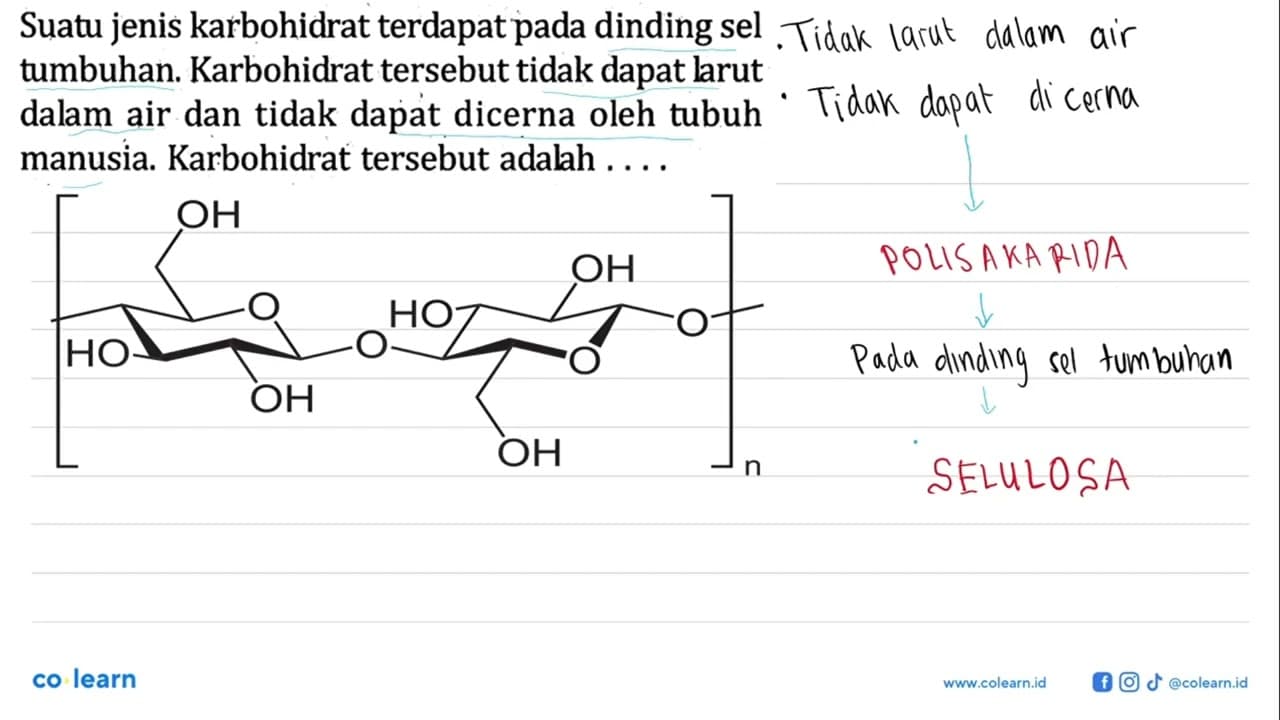 Suatu jenis karbohidrat terdapat pada dinding sel
tumbuhan. Karbohidrat tersebut tidak dapat larut
dalam air dan tidak dapat dicerna oleh tubuh
manusia. Karbohidrat tersebut adalah . . . .
. Tidak larut dalam air
• Tidak dapat di cerna
POLISAKARIDA
Pada dinding sel tumbuhan
SELULOSA
OH
OH
O
HO
O
O
HO
O
OH
OH
n
co learn
www.colearn.id
@colearn.id